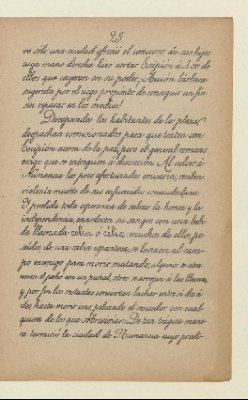 25
en sólo una ciudad ofreció el concurso de sus hijos
cuya mano derecha hizo cortar Escipión á 400 de
ellos que cayeron en su poder. Acción bastante
sugerida por el ciego propósito de conseguir un fin
sin reparar en los medios!
Desesperados los habitantes de la plaza,
despachan comisionados para que traten con
Escipión acerca de la paz, pero el general romano
exige que se entreguen á discreción. Al volver á
Numancia los poco afortunados emisarios, reciben
violenta muerte de sus enfurecidos conciudadanos.
Y perdida toda esperanza de salvar la honra y la
independencia, enardecen su sangre con una bebi-
da llamada celia ó celix, muchos de ellos, po-
seidos de una rabia espantosa, se lanzan al cam-
po enemigo para morir matando, algunos se atra-
viesan el pecho con un puñal, otros se arrojan á las llamas,
y por fin los restantes conciertan luchar entre sí dos á
dos, hasta morir uno, peleando el vencedor con cual-
quiera de los que sobrevivían. De tan trágica mane-
ra terminó la ciudad de Numancia cuyo presti-